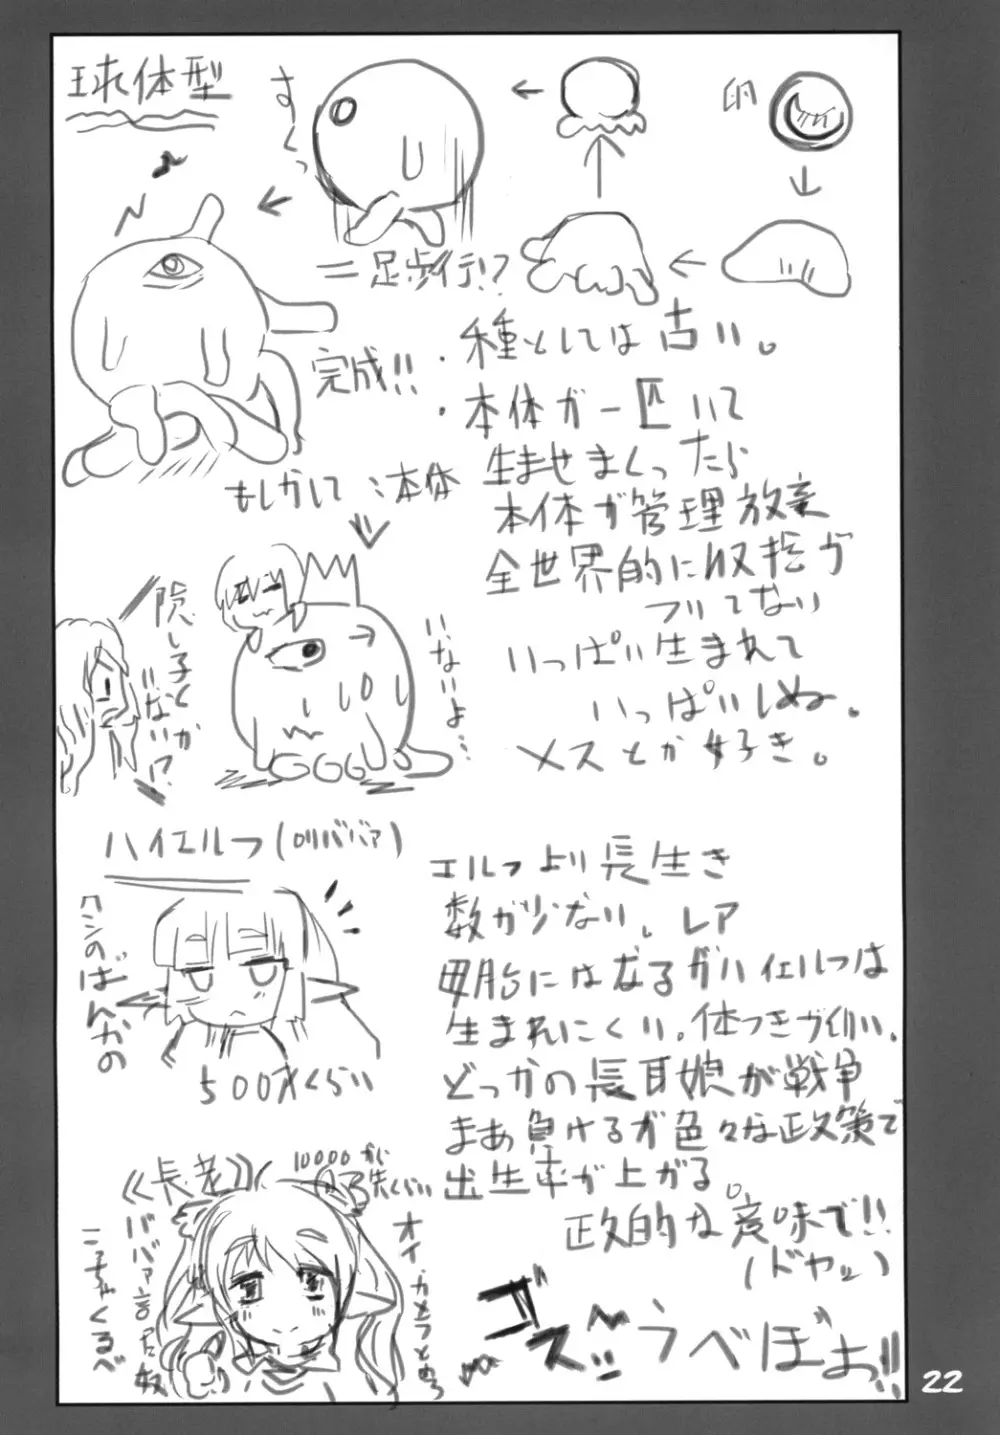 球体型
卵
すくっ
二足歩行!?
完成!!
・種としては古い。
・本体が一匹いて
生ませまくったら
本体が管理放棄
全世界的に収拾が
ついてない
いっぱい生まれて
いっぱいしぬ。
メスとか好き。
もしかして:本体
隠し子とか
いない!?
いないよ…
ハイエルフ(ロリババァ)
500才くらい
エルフより長生き
数が少ない。レア
母胎にはなるがハイエルフは
生まれにくい。体つきが幼い。
どっかの長耳娘が戦争
まあ負けるが色々な政策で
出生率が上がる。
政的な意味で!!
(ドヤッ)
《長老》
10000から先
オイ、カとうつとめろ
ババァ言った奴
こっちゃくるべ
ゴズッ
うべぼぉっ!!
22